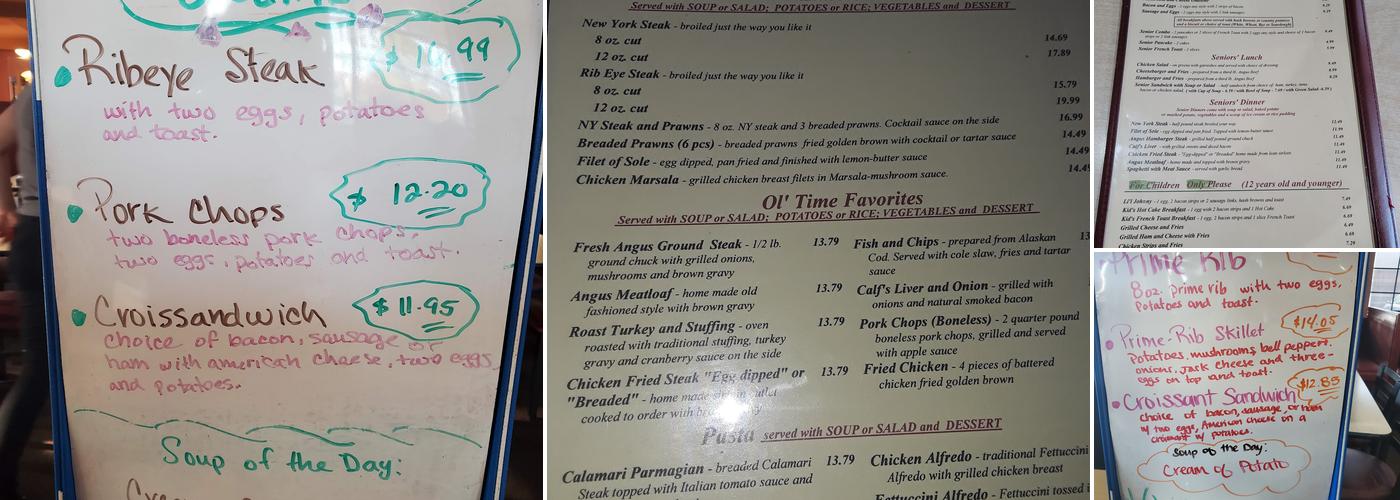 Ribeye Steak
with two eggs, potatoes
and toast.
Pork Chops $ 12.20
two boneless pork chops,
two eggs, potatoes and toast.
Croissandwich $ 11.95
choice of bacon, sausage or
ham with american cheese, two eggs
and potatoes.
Soup of the Day:
Served with SOUP or SALAD; POTATOES or RICE; VEGETABLES and DESSERT
New York Steak - broiled just the way you like it
8 oz. cut 14.69
12 oz. cut 17.89
Rib Eye Steak - broiled just the way you like it
8 oz. cut 15.79
12 oz. cut 19.99
NY Steak and Prawns - 8 oz. NY steak and 3 breaded prawns. Cocktail sauce on the side 16.99
Breaded Prawns (6 pcs) - breaded prawns fried golden brown with cocktail or tartar sauce 14.49
Filet of Sole - egg dipped, pan fried and finished with lemon-butter sauce 14.49
Chicken Marsala - grilled chicken breast filets in Marsala-mushroom sauce. 14.49
Ol' Time Favorites
Served with SOUP or SALAD; POTATOES or RICE; VEGETABLES and DESSERT
Fresh Angus Ground Steak - 1/2 lb. 13.79
ground chuck with grilled onions,
mushrooms and brown gravy
Angus Meatloaf - home made old 13.79
fashioned style with brown gravy
Roast Turkey and Stuffing - oven 13.79
roasted with traditional stuffing, turkey
gravy and cranberry sauce on the side
Chicken Fried Steak "Egg dipped" or 13.79
"Breaded" - home made
cooked to order with
Fish and Chips - prepared from Alaskan
Cod. Served with cole slaw, fries and tartar
sauce
Calf's Liver and Onion - grilled with
onions and natural smoked bacon
Pork Chops (Boneless) - 2 quarter pound
boneless pork chops, grilled and served
with apple sauce
Fried Chicken - 4 pieces of battered
chicken fried golden brown
Pasta served with SOUP or SALAD and DESSERT
Calamari Parmagian - breaded Calamari 13.79
Steak topped with Italian tomato sauce and
Chicken Alfredo - traditional Fettuccini
Alfredo with grilled chicken breast
Fettuccini Alfredo - Fettuccini tossed
Bacon and Eggs
Sausage and Eggs
Senior Combo
Senior Pancake - 2 cakes
Senior French Toast
Seniors' Lunch
Chicken Salad
Cheeseburger and Fries
Hamburger and Fries
Senior Sandwich with Soup or Salad
Seniors' Dinner
New York Steak
Filet of Sole
Angus Hamburger Steak
Calf's Liver
Chicken Fried Steak
Angus Meatloaf
Spaghetti with Meat Sauce
For Children Only Please (12 years old and younger)
Li'l Johnny 7.49
Kid's Hot Cake Breakfast
Kid's French Toast Breakfast
Grilled Cheese and Fries
Grilled Ham and Cheese with Fries
Chicken Strips and Fries
Prime Rib
8oz. prime rib with two eggs,
Potatoes and toast.
Prime-Rib Skillet $14.05
Potatoes, mushrooms, bell peppers,
onions, Jack cheese and three-
eggs on top and toast.
Croissant Sandwich $12.85
choice of bacon, sausage, or ham
w/ two eggs, American cheese on a
croissant w/ potatoes.
Soup of the Day:
Cream of Potato